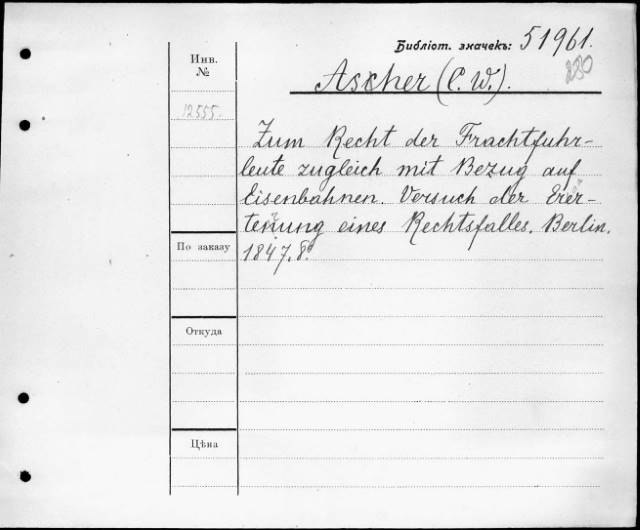 Библіот. значекъ: 51961.
230
Инв. №
Ascher (C. W.).
12555.
Zum Recht der Frachtfuhr-
leute zugleich mit Bezug auf
Eisenbahnen. Versuch der
eines Rechtsfalles. Berlin.
По заказу
1847. 8º
Откуда
Цѣна